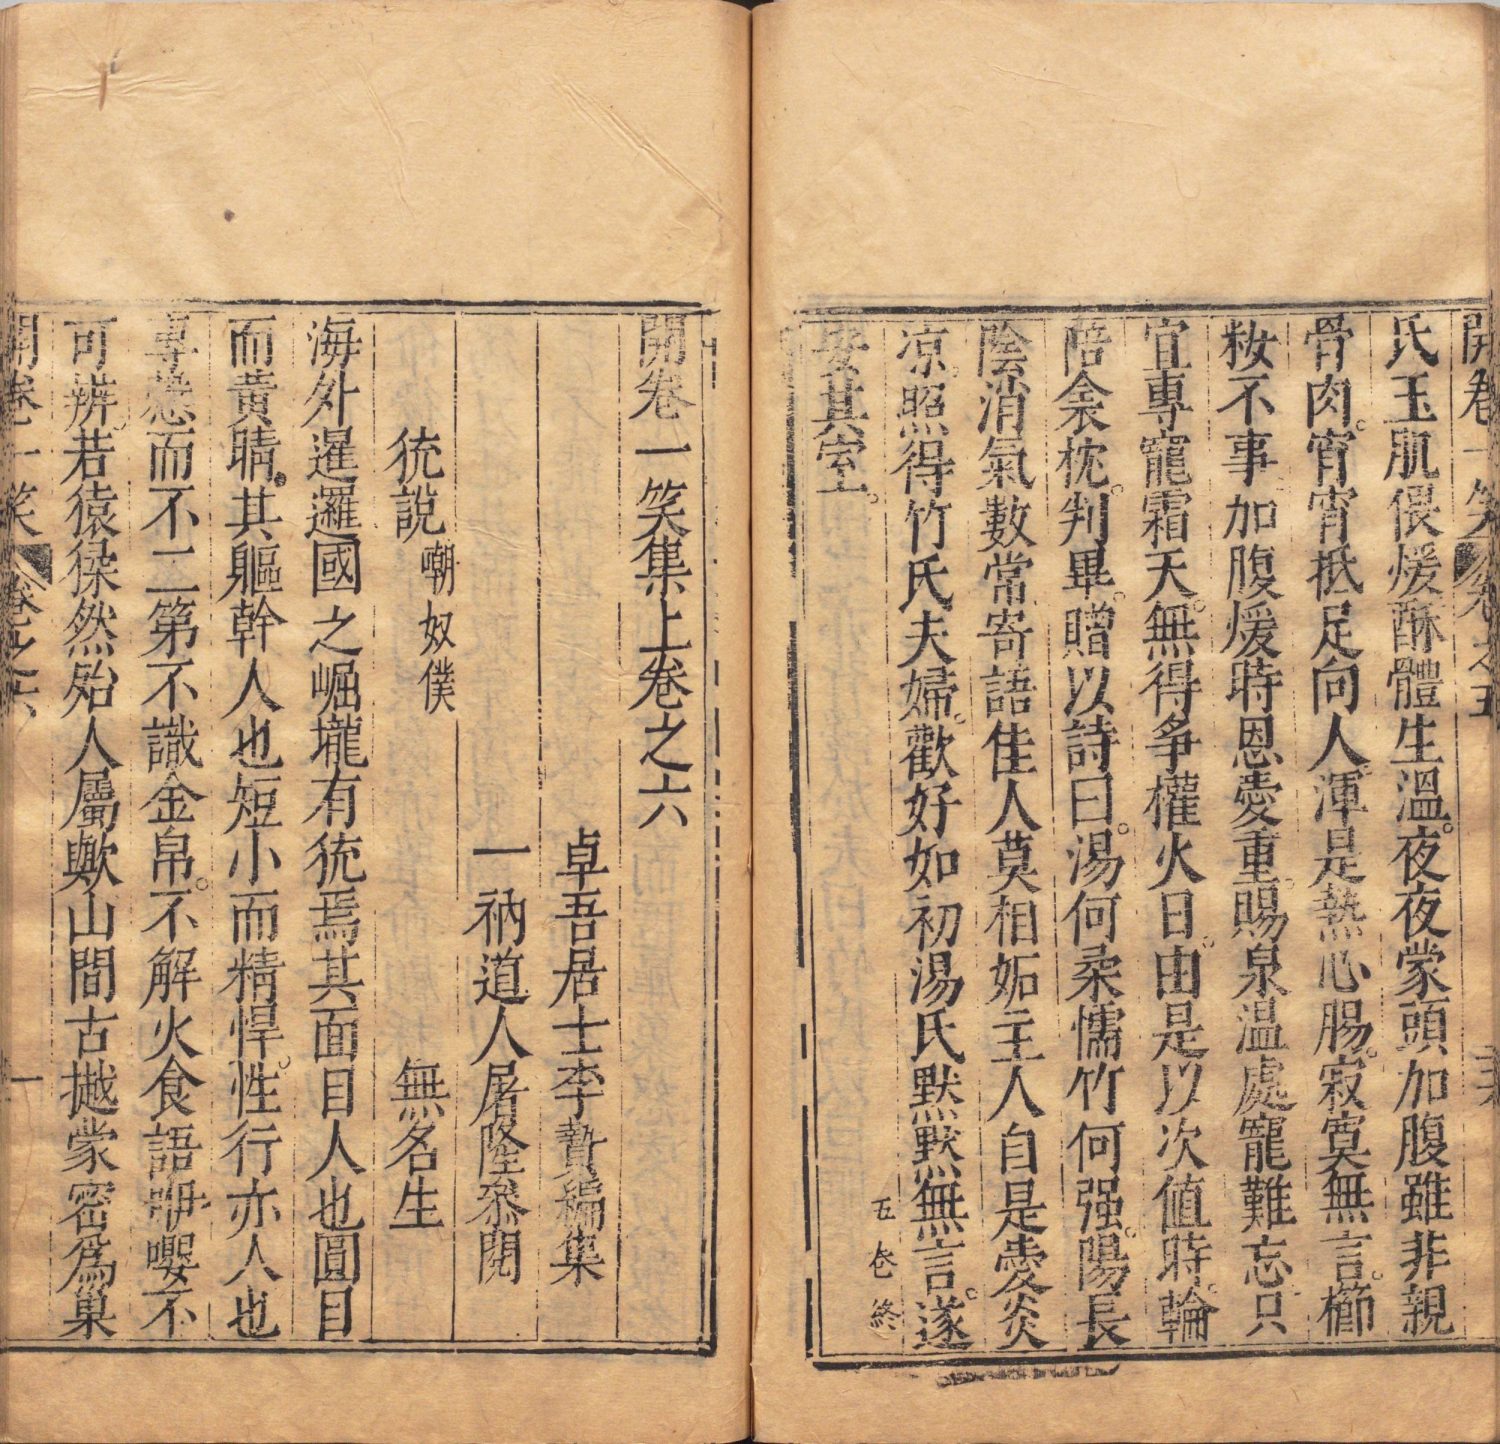 開卷一笑 卷之五
氏玉肌偎煖酥體生溫。夜夜蒙頭加腹雖非親
骨肉。宵宵抵足向人渾是熱心腸。寂寞無言。櫛
籹不事加腹煖時恩愛重。賜泉溫處寵難忘只
宜專寵霜天。無得争權火日。由是以次値時。輪
陪衾枕。判畢。贈以詩曰。湯何柔懦竹何强。陽長
陰消氣數常寄語佳人莫相妬主人自是愛炎
凉。照得竹氏夫婦。歡好如初湯氏默默無言。遂
安其室。
五卷終
開卷一笑集上卷之六
卓吾居士李贄編集
一衲道人屠隆叅閱
狨說 嘲奴僕 無名生
海外暹邏國之崛壠有狨焉其面目人也圓目
而黄睛。其軀幹人也短小而精悍。性行亦人也
專慤而不二第不識金帛。不解火食語咿嚶不
可辨。若猿猱然殆人屬歟山間古樾蒙密爲巢
開卷一笑 卷之六 一